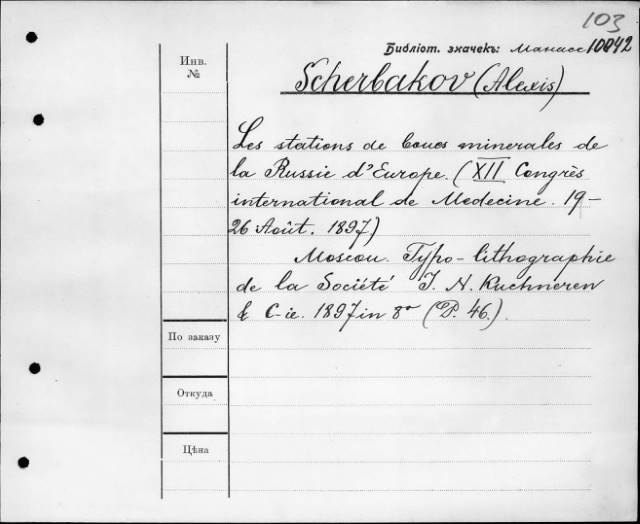 103
Библіот. значекъ: Манасс 10042
Инв.
№
Scherbakov (Alexis)
Les stations de boues minerales de
la Russie d'Europe. (XII Congrès
international de Medecine. 19-
26 Août. 1897)
Moscou. Typo-lithographie
de la Société J. N. Kuchneren
& C-ie. 1897 in 8° (P. 46.).
По заказу
Откуда
Цѣна